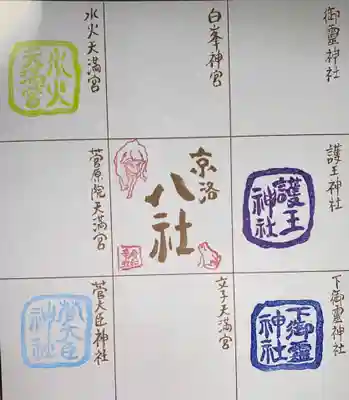 御靈神社
白峯神宮
水火天満宮
水火
天満宮
護王神社
護王
神社
京洛
八社
菅原院天満宮
下御靈神社
下御靈
神社
文子天満宮
菅大臣神社
菅大臣
神社